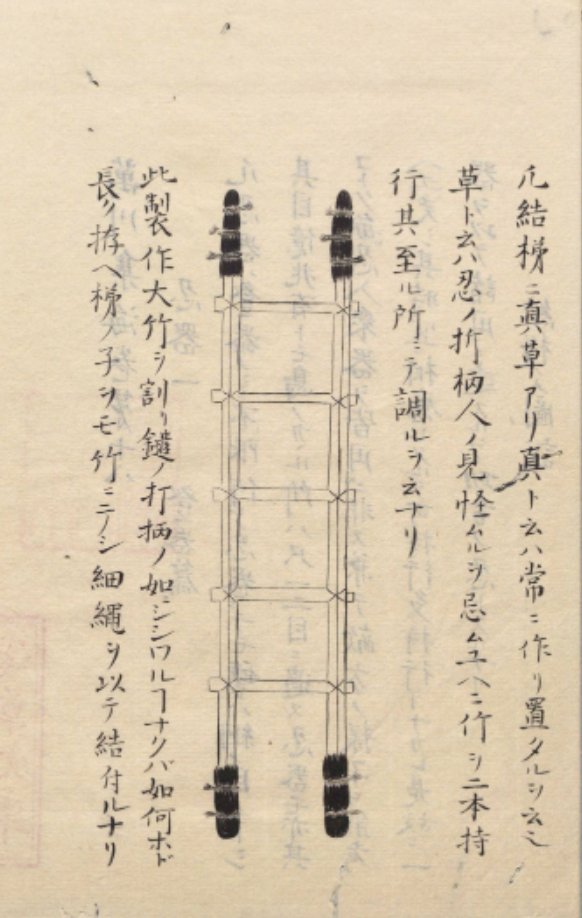 凡結梯ニ真草アリ真ト云ハ常ニ作リ置タルヲ云ニ
草ト云ハ忍ノ折柄人ノ見怪ムルヲ忌ムユヘニ竹ヲ二本持
行其至ル所ニテ調ルヲ云ナリ
此製作大竹ヲ割リ鑓ノ打柄ノ如シシワルヿナクバ如何ホド
長ク拵ヘ梯ノ子ヲモ竹ニテシ細縄ヲ以テ結付ルナリ